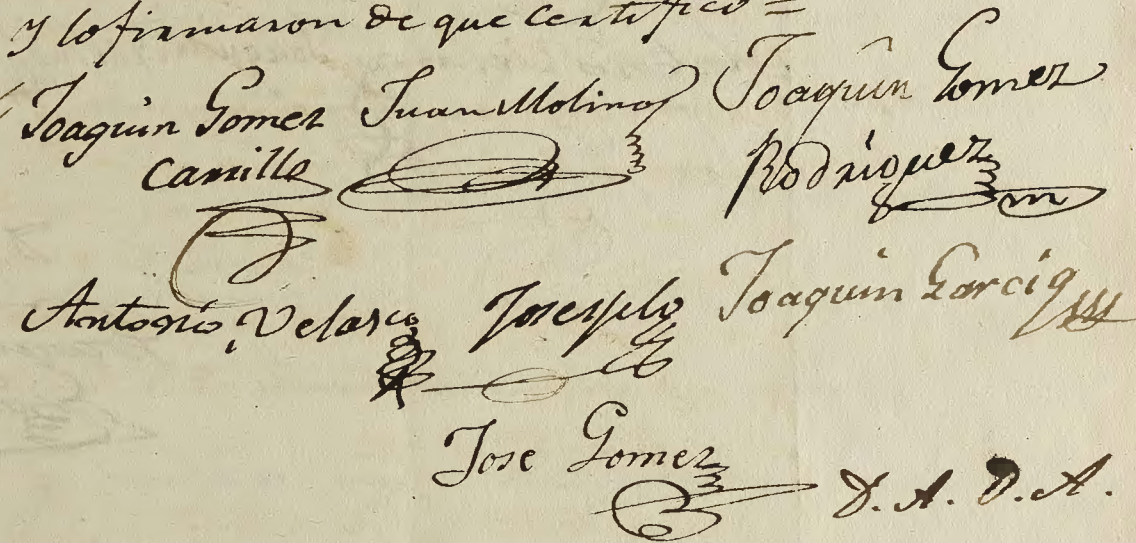 y lo firmaron de que Certifico =
Joaquin Gomez Juan Molina Joaquin Gomez
Carrillo Rodriguez
Antonio Velasco Joaquin Garcia
Jose Gomez
D. A. D. A.